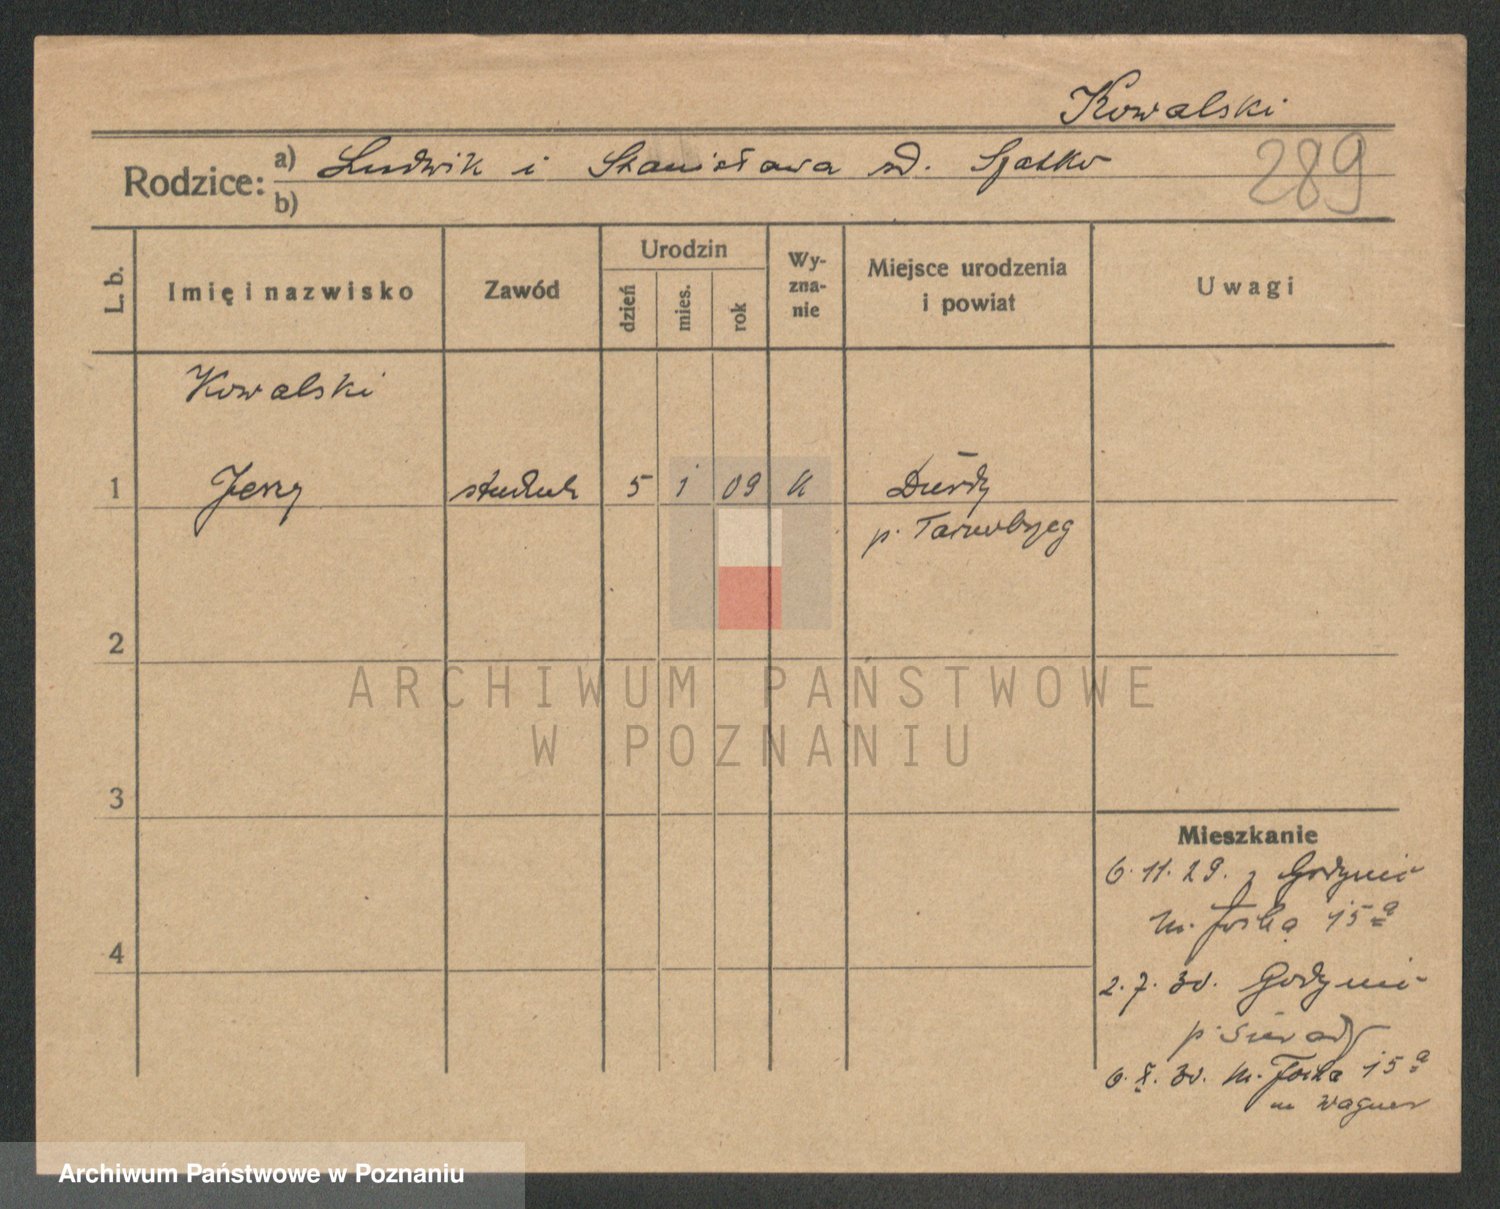 Kowalski
Rodzice: a) Ludwik i Stanisława zd.
b)
289
L. b.
Imię i nazwisko
Zawód
Urodzin
dzień
mies.
rok
Wy-
zna-
nie
Miejsce urodzenia
i powiat
Uwagi
Kowalski
1 Jerzy student 5 1 09 k Dürdy
p. Tarnobrzeg
2
3
4
Mieszkanie
6. 11. 29. z Godynic
m. Focha 15a
2. 7. 30. Godynic
p. Sieradz
6. X. 30. m. Focha 15a
m Wagner
ARCHIWUM PAŃSTWOWE
W POZNANIU
Archiwum Państwowe w Poznaniu